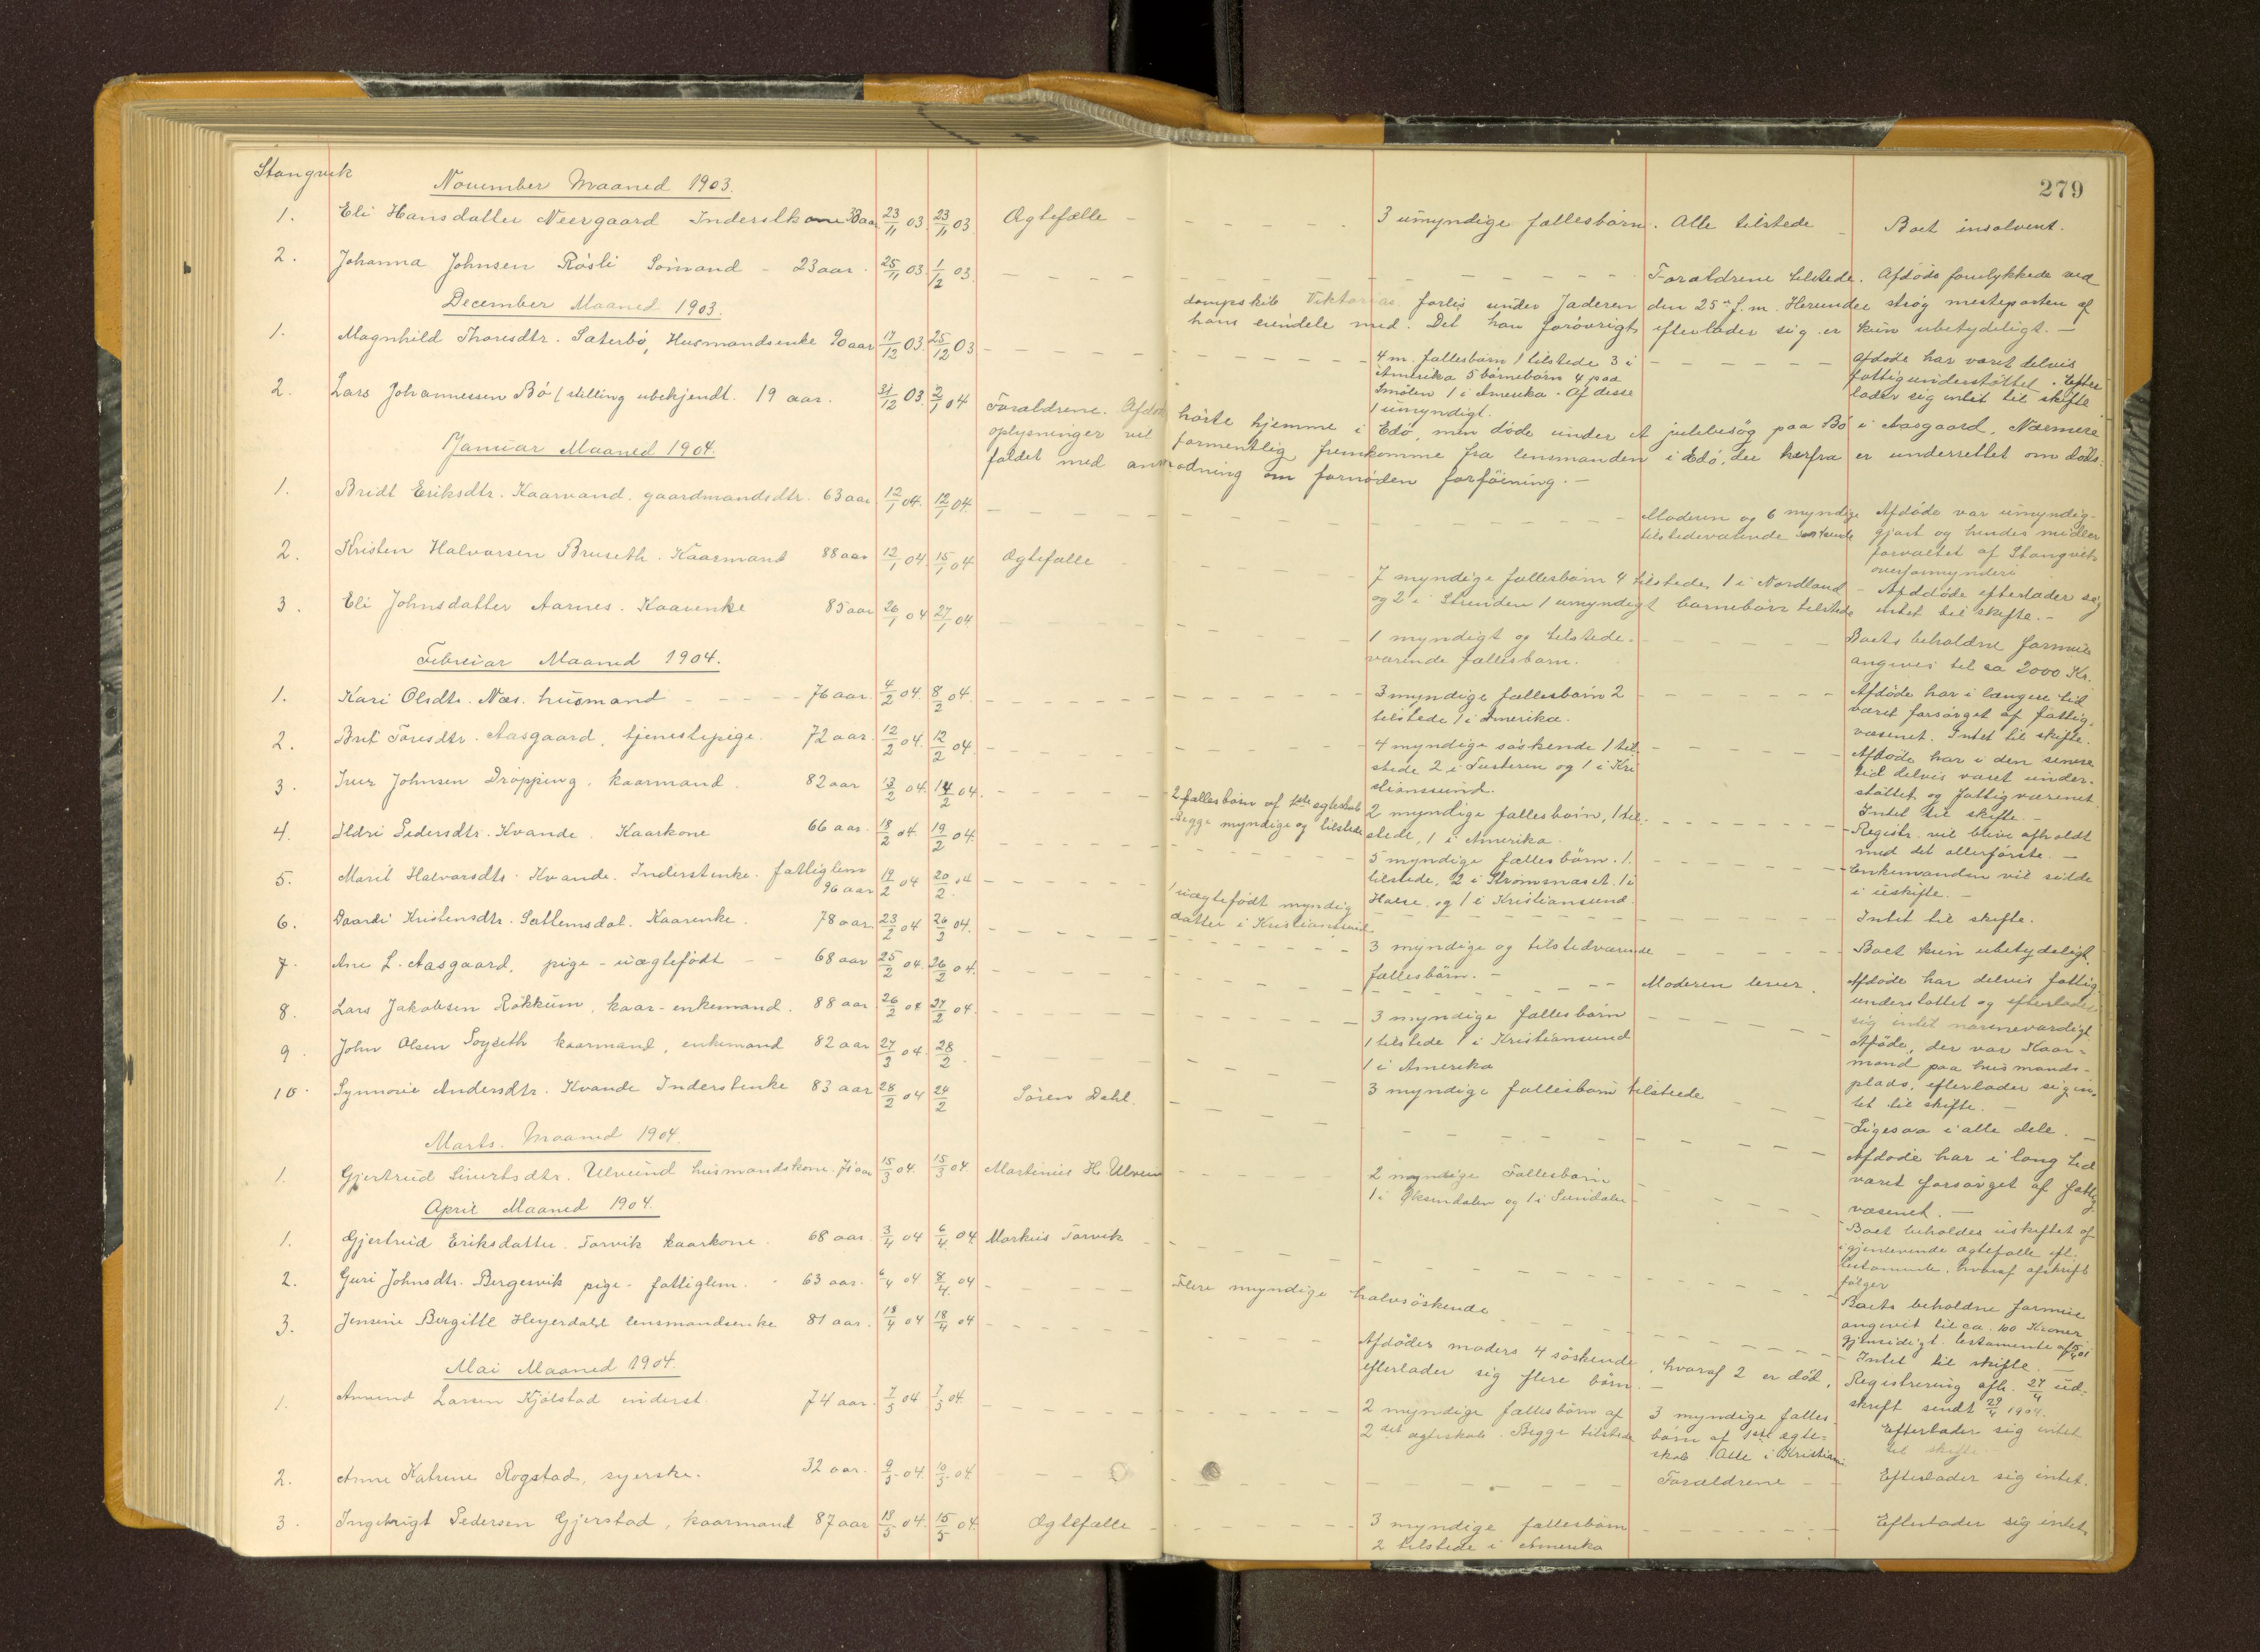 279
Stangvik
November Maaned 1903.
1. Eli Hansdatter Neergaard Inderstkone 38 aar 23/11 03. 23/11 03 Ægtefælle - - - - - - 3 umyndige fællesbørn. Alle tilstede - Boet insolvent.
2. Johanna Johnsen Røsli Sømand - 23 aar. 25/11 03. 1/12 03. - - - - Forældrene tilstede. Afdøde forulykkede ved
dampskib Viktorias forlis under Jæderen den 25de f.m. Herunder strøg mesteparten af
hans eiendele med. Det han forøvrigt efterlader sig er kun ubetydeligt. -
December Maaned 1903.
1. Magnhild Thoresdtr. Sæterbø, Husmandsenke 90 aar 17/12 03. 25/12 03 - - - -
4 m. fællesbørn 1 tilstede 3 i
Amerika 5 børnebørn 4 paa
Smølen 1 i Amerika. Af disse
1 umyndigt.
Afdøde har været delvis
fattigunderstøttet. Efter
lader sig intet til skifte
2. Lars Johannessen Bø (stilling ubekjendt. 19 aar. 31/12 03. 2/1 04 Forældrene. Afdøde hørte hjemme i Edø, men døde under et julebesøg paa Bø i Aasgaard. Nærmere
oplysninger vil formentlig fremkomme fra lensmanden i Edø, der herfra er underrettet om døds-
faldet med anmodning om fornøden forføining. -
Januar Maaned 1904.
1. Bridt Eriksdtr. Kaarvand. gaardmandsdtr. 63 aar 12/1 04. 12/1 04. - - - -
Moderen og 6 myndige
tilstedeværende søskende
Afdøde var umyndig-
gjort og hendes midler
forvaltet af Stangvik
overformynderi
2. Kristen Halvorsen Bruseth. Kaarmand 88 aar 12/1 04. 15/1 04 Ægtefælle - - - -
7 myndige fællesbørn 4 tilstede, 1 i Nordland
og 2 i Strinden 1 umyndigt barnebarn tilstede
Afddøde efterlader sig
intet til skifte. -
3. Eli Johnsdatter Aarnes. Kaarenke 85 aar 26/1 04 27/1 04. - - - -
1 myndigt og tilstede-
værende fællesbarn.
Boets beholdne formue
angives til ca 2000 Kr.
Februar Maaned 1904.
1. Kari Olsdtr. Næs. husmand - - - - 76 aar. 4/2 04. 8/2 04. - - - -
3 myndige fællesbørn 2
tilstede 1 i Amerika.
Afdøde har i længere tid
været forsørget af fattig-
væsenet. Intet til skifte.
2. Brit Toresdtr. Aasgaard, tjenestepige. 72 aar. 12/2 04. 12/2 04. - - - -
4 myndige søskende 1 til-
stede 2 i Tusteren og 1 i Kri
stianssund.
Afdøde har i den senere
tid delvis været under-
støttet og fattigvæsenet
Intet til skifte. -
3. Iver Johnsen Drøpping, kaarmand. 82 aar 13/2 04. 14/2 04. - - - -
2 fællesbørn af 1ste egteskab
Begge myndige og tilstede
2 myndige fællesbørn, 1 til-
stede, 1 i Amerika.
Registr. vil blive afholdt
med det allerførste. -
4. Ildri Pedersdtr. Kvande. Kaarkone 66 aar. 18/2 04 19/2 04. - - - -
5 myndige fællesbørn. 1.
tilstede, 2 i Strømsnæset. 1 i
Halse, og 1 i Kristiansund.
Enkemanden vil sidde
i uskifte. -
5. Marit Halvorsdtr. Kvande. Inderstenke. fattiglem
96 aar 19/2 04 20/2 04 - - - -
1 uægtefødt myndig
datter i Kristianssund
Intet til skifte.
6. Daardi Kristensdtr. Sættemsdal. Kaarenke. 78 aar. 23/2 04 26/2 04. - - - -
3 myndige og tilstedværende
fællesbørn. -
Boet kun ubetydeligt.
7. Ane L. Aasgaard, pige - uægtefødt - - 68 aar 25/2 04. 26/2 04. - - - - Moderen lever.
Afdøde har delvis fattig-
understøttet og efterlader
sig intet nævneværdigt
8. Lars Jakobsen Røkkum, kaar-enkemand. 88 aar 26/2 04 27/2 04. - - - -
3 myndige fællesbørn
1 tilstede 1 i Kristiansund
1 i Amerika
Afdøde, der var Kaar-
mand paa husmands-
plads, efterlader sig in-
tet til skifte. -
9. John Olsen Søyseth kaarmand, enkemand 82 aar 27/2 04. 28/2. - - - -
3 myndige fællesbørn tilstede
Ligesaa i alle dele. -
10. Synnøve Andersdtr. Kvande Inderstenke 83 aar 28/2 04 24/2 Søren Dahl. - - - -
Afdøde har i lang tid
været forsørget af fattig-
væsenet. -
Marts. Maaned 1904.
1. Gjertrud Sivertsdtr. Ulvund husmandskone. 75 aar 15/3 04. 15/3 04. Martinus H. Ulvun - - - -
2 myndige Fællesbørn
1 i Øksendalen og 1 i Sundalen
Boet beholdes uskiftet af
igjenlevende ægtefælle efl.
testamente. hvoraf afskrift
følger
April Maaned 1904.
1. Gjertrud Eriksdatter. Torvik kaarkone. 68 aar. 3/4 04 6/4 04 Markus Torvik - - - -
Boets beholdne formue
angivet til ca. 100 Kroner.
gjensidigt testamente af
2. Guri Johnsdtr. Bergesvik pige - fattiglem. - 63 aar. 6/4 04 8/4 04 - - - - Flere myndige halvsøskende - - - - Intet til skifte. -
3. Jensine Birgitte Heyerdahl lensmandsenke 81 aar. 18/4 04 18/4 04 - - - -
Afdødes moders 4 søskende, hvoraf 2 er død,
efterlader sig flere børn. -
Registrering afh. 27/4 ud-
skrift sendt 29/4 1904.
Mai Maaned 1904.
1. Amund Larsen Kjølstad inderst. 74 aar. 7/5 04 7/5 04. - - - -
2 myndige fællesbørn af
2det ægteskab. Begge tilstede
3 myndige fælles-
børn af 1ste ægte-
skab. Alle i Kristiania
Efterlader sig intet
til skifte.
2. Anne Katrine Rogstad, syerske. 32 aar. 9/5 04. 10/5 04. - - - - Forældrene - - Efterlader sig intet.
3. Ingebrigt Pedersen Gjerstad, kaarmand 87 aar 13/5 04. 15/5 04. Ægtefælle - - - -
3 myndige fællesbørn
2 tilstede i Amerika
Efterlader sig intet.